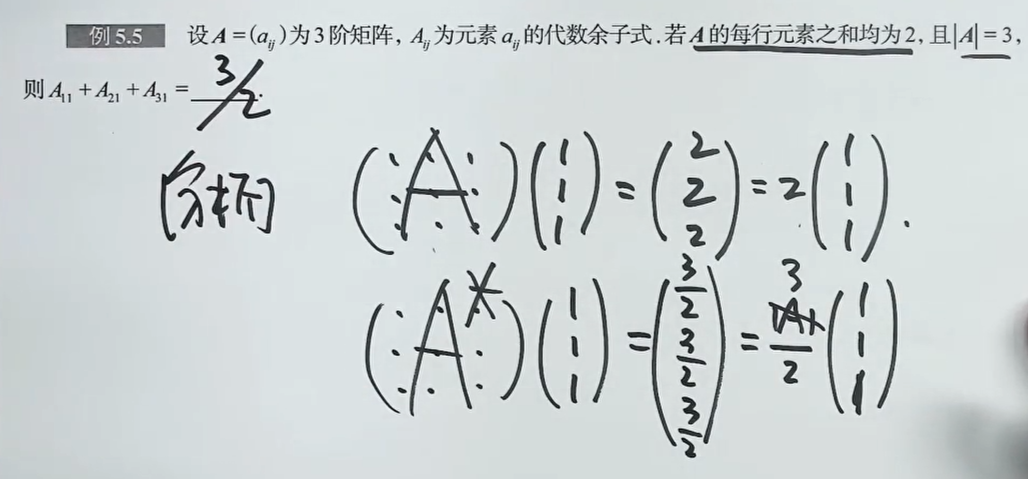 例 5.5 设 A = (a_{ij}) 为 3 阶矩阵, A_{ij} 为元素 a_{ij} 的代数余子式. 若 A 的每行元素之和均为 2, 且 |A| = 3,
则 A_{11} + A_{21} + A_{31} = 3/2.
[分析] (A)(1 1 1) = (2 2 2) = 2(1 1 1).
(A*)(1 1 1) = (3/2 3/2 3/2) = 3 |A|/2 (1 1 1)